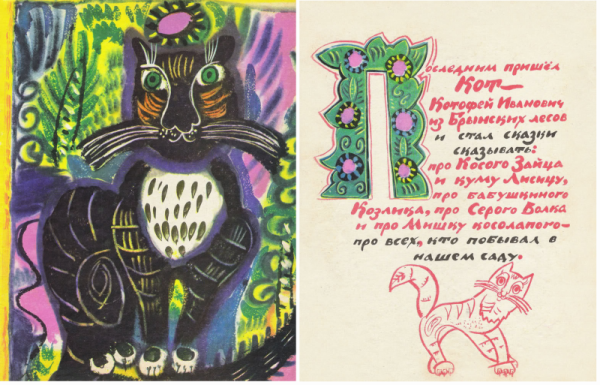 Последним пришёл
Кот
Котофей Иванович
из Брынских лесов
и стал сказки
сказывать:
про Косого Зайца
и куму Лисицу,
про бабушкиного
Козлика, про Серого Волка
и про Мишку косолапого-
про всех, кто побывал в
нашем саду.